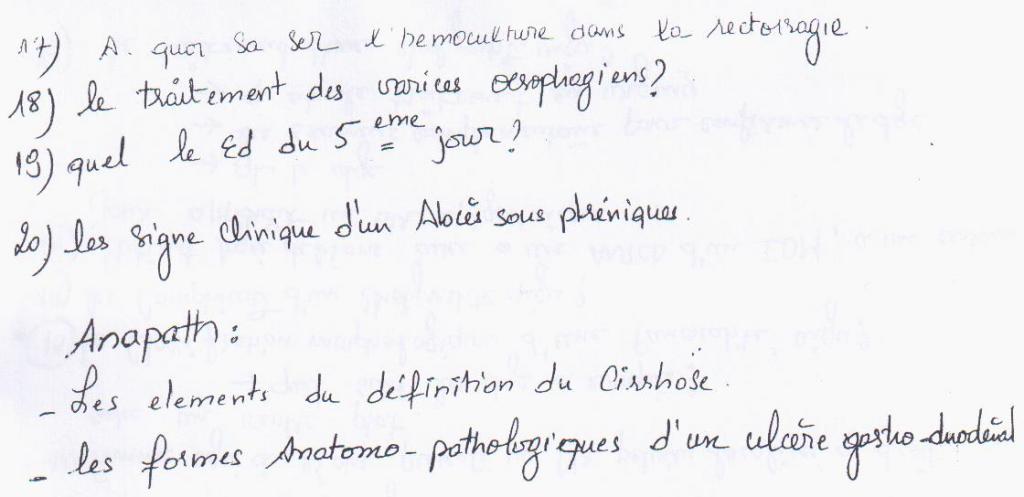 17) A. quoi Sa Ser l'hemoculture dans la rectorragie.
18) le traitement des varices oesophagiens?
19) quel le Ed du 5 eme jour?
20) les signe clinique d'un Abcès sous phréniques.
Anapath :
- Les elements du définition du Cirrhose.
- les formes Anatomo-pathologiques d'un ulcère gastro-duodénal